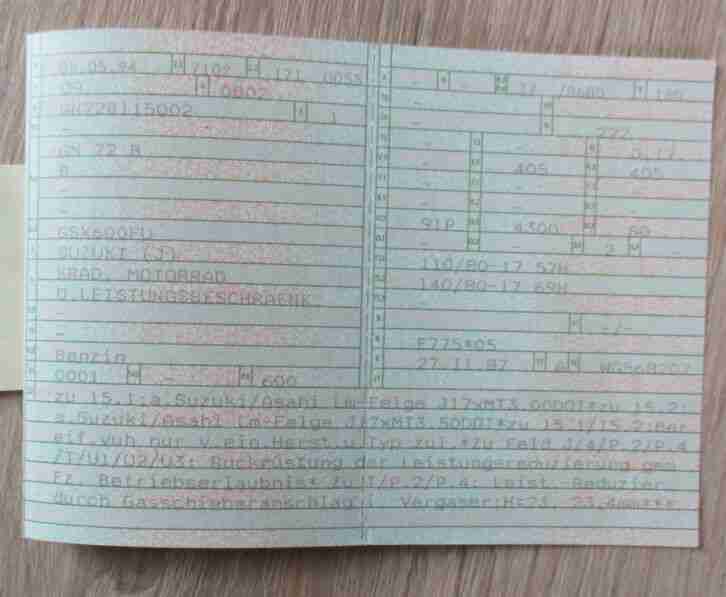 08.05.94 7102 171 0055
09 0802
GN72B115002 1
-
GN 72 B
B
-
-
GSX600FU
SUZUKI (J)
KRAD. MOTORRAD
O.LEISTUNGSBESCHRAENK.
-
-
Benzin
0001 - 600
- - 37 /8600 180
- -
- 222
- -
- 405 405
-
-
91P 4300 80
- 2 -
110/80-17 57H
140/80-17 69H
-
- -/-
F775*05
27.11.87 WG569207
zu 15.1:a.Suzuki/Asahi Lm-Felge J17xMT3.00DOT*zu 15.2:
a.Suzuki/Asahi Lm-Felge J17xMT3.50DOT*zu 15.1/15.2:Ber
eif.vuh nur v.ein.Herst.u.Typ zul.*zu Feld J/4/P.2/P.4
/T/U1/U2/U3: Rückrüstung der Leistungsreduzierung gem
Fz. Betriebserlaubnis* zu T/P.2/P.4: Leist.-Reduzier.
durch Gasschieberanschlag i. Vergaser:H=23, 23,4mm***